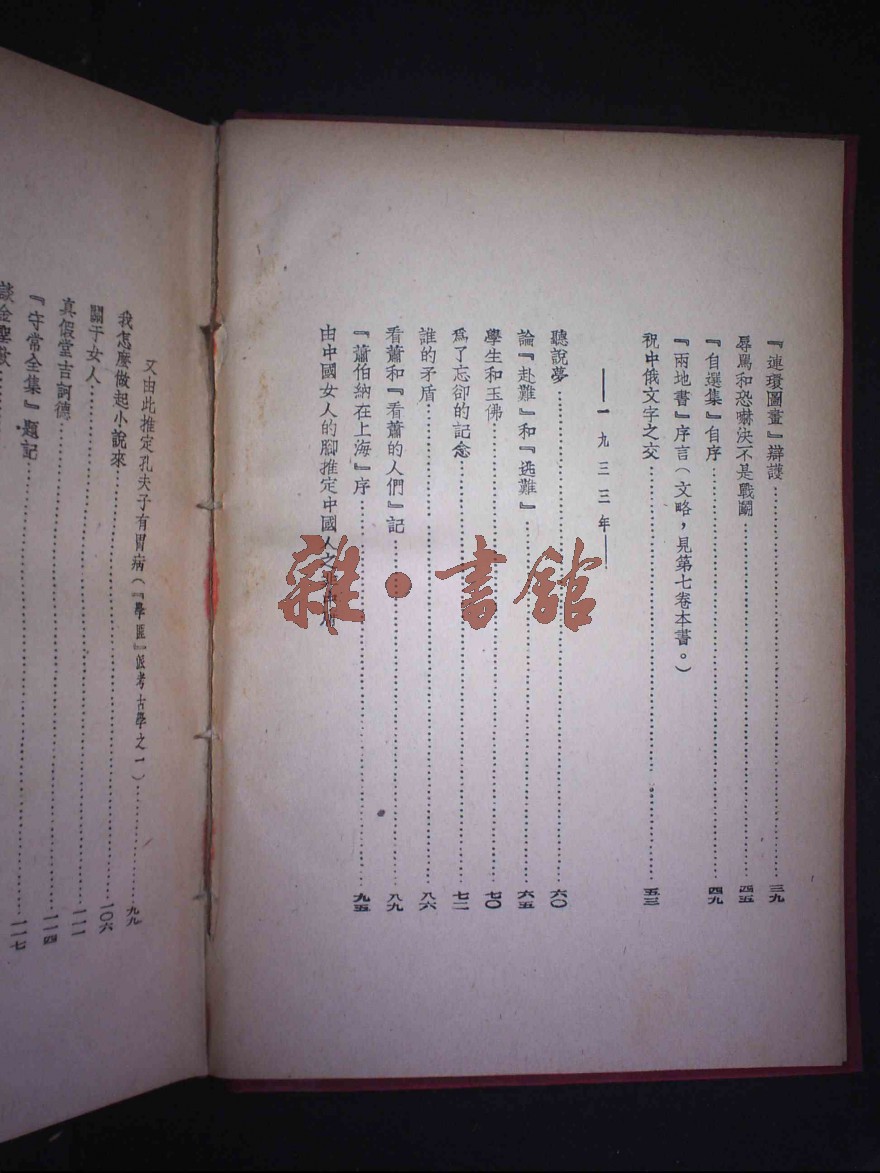 『連環圖畫』辯護……三九
辱罵和恐嚇決不是戰鬭……四五
『自選集』自序……四九
『兩地書』序言（文略，見第七卷本書。）
祝中俄文字之交……五三
——一九三三年——
聽說夢……六〇
論『赴難』和『逃難』……六五
學生和玉佛……七〇
爲了忘卻的記念……七二
誰的矛盾……八六
看蕭和『看蕭的人們』記……八九
『蕭伯納在上海』序……九五
由中國女人的腳推定中國人之
又由此推定孔夫子有胃病（『學匪』派考古學之一）……九九
我怎麼做起小說來……一〇六
關于女人……一一一
真假堂吉訶德……一一四
『守常全集』題記……一一七
談金聖歎……
雜·書館